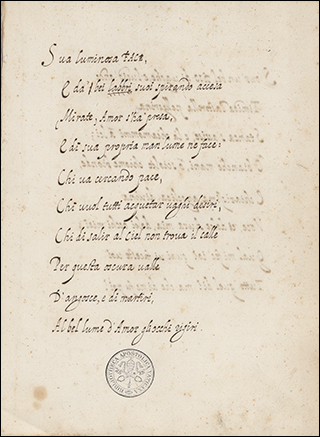 Sua luminosa face,
E da i bei labbri suoi spirando accesa
Mirate, Amor l'ha presa,
E di sua propria man lume ne face:
Chi va cercando pace,
Chi vuol tutti acquetar vaghi disiri,
Chi di salir al Ciel non trova il calle
Per questa oscura valle
D'angosce, e di martiri,
Al bel lume d'Amor gli occhi giri.
BIBLIOTECA APOSTOLICA VATICANA